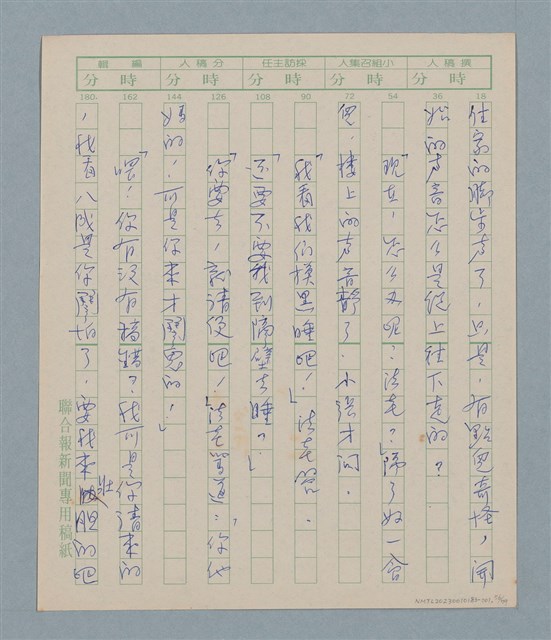 撰稿人 小組召集人 採訪主任 分稿人 編輯
時 分 時 分 時 分 時 分 時 分
18 36 54 72 90 108 126 144 162 180
住家的腳步声了，只是，有點兒奇怪，開
始的声音怎么是從上往下走的？
「現在，怎么办呢？法老？」隔了好一會
兒，樓上的声音靜了，小張才问。
「我看我们摸黑睡吧！」法老答。
「还要不要我到隔壁去睡？」
「你要去，就請便吧！」法老罵道：「你他
媽的！可是你來才鬧鬼的！」
「喂！你有没有搞錯？我可是你請來的
，我看八成是你鬧怕了，要我來壯胆的吧
聯合報新聞專用稿紙